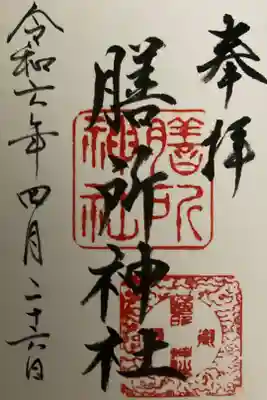 奉拝
膳所神社
膳所神社
令和六年四月二十六日